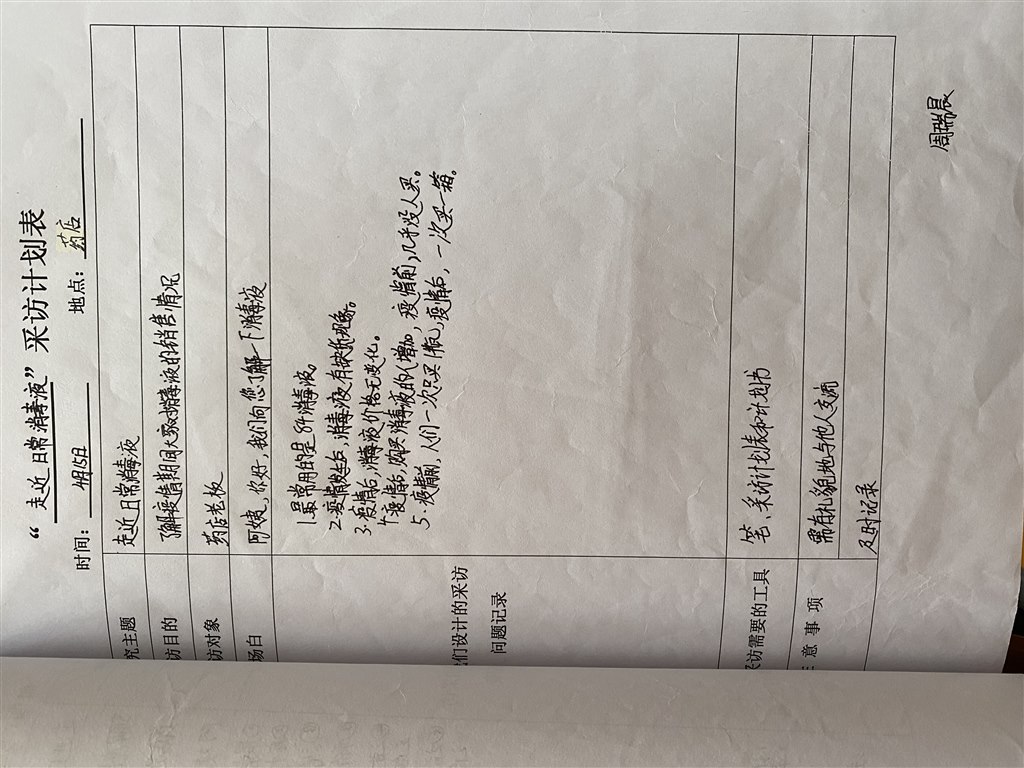 “走近日常消毒液”采访计划表
时间：4月15日 地点：药店
究主题 走近日常消毒液
访目的 了解疫情期间大家对消毒液的销售情况
访对象 药店老板
场白 阿姨，你好，我们向您了解一下消毒液
们设计的采访
问题记录
1.最常用的是84消毒液
2.疫情发生后，消毒液有缺货现象。
3.疫情后，消毒液价格无变化。
4.疫情后，购买消毒液的人增加，疫情前，几乎没人买。
5.疫情前，人们一次只买1瓶，疫情后，一次买一箱。
采访需要的工具 笔、采访计划表和计划书
注意事项 需有礼貌地与他人交流
及时记录
周瑞晨